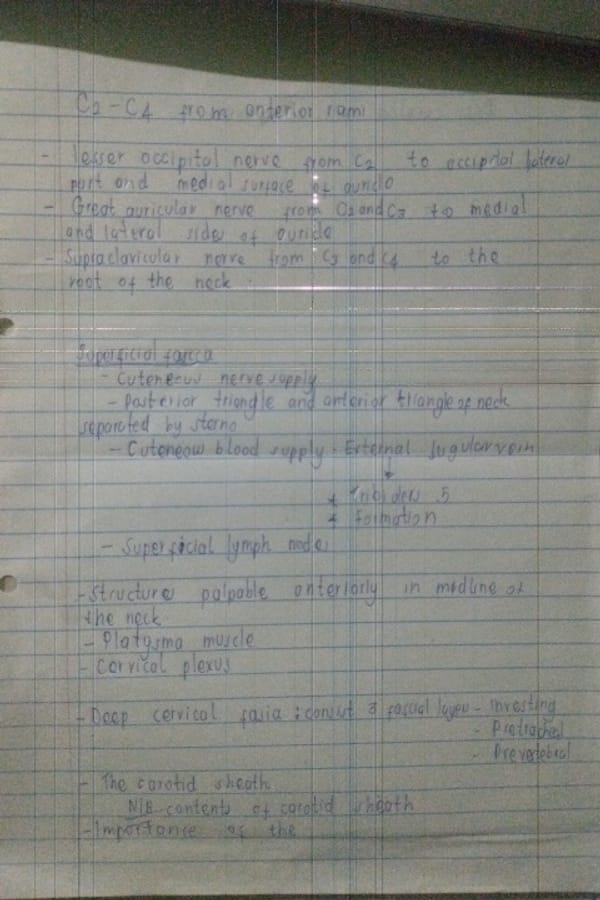 C2-C4 from anterior rami
- lesser occipital nerve from C2 to occipital lateral
part and medial surface of auricle
- Great auricular nerve from C2 and C3 to medial
and lateral sides of auricle
- Supraclavicular nerve from C3 and C4 to the
root of the neck.
Superficial fascca
- Cuteneous nerve supply
- Posterior triangle and anterior triangle of neck
separated by sterno
- Cuteneow blood supply - External Jugular vein
* 5
* Formation
- Superficial lymph node
- Structures palpable anteriorly in midline of
the neck
- Platysma muscle
- Cervical plexus
- Deep cervical fasia : consist 3 fascial layer - Investing
- Pretracheal
- Prevetebral
- The carotid sheath
N/B contents of carotid sheath
- Importance of the